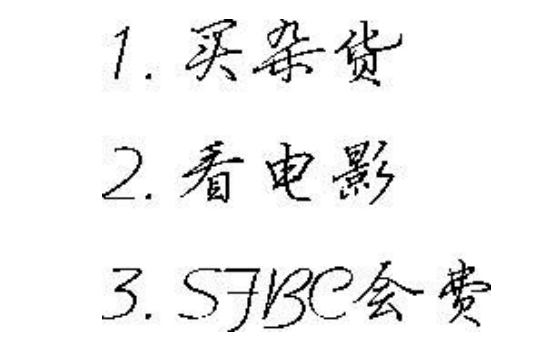 1. 买杂货
2. 看电影
3. SJBC会费